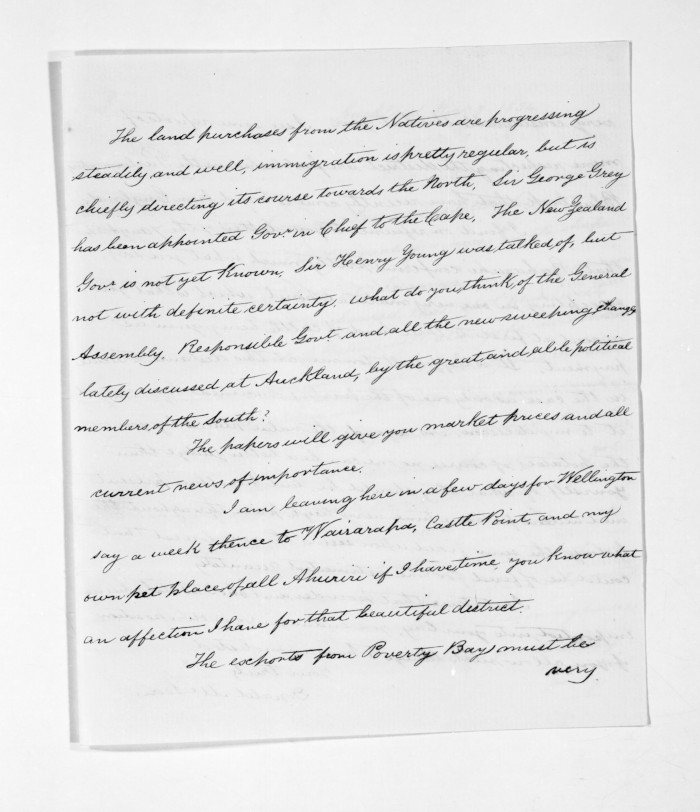 The land purchases from the Natives are progressing
steadily and well, immigration is pretty regular, but is
chiefly directing its course towards the North, Sir George Grey
has been appointed Govr. in Chief to the Cape, The New Zealand
Govr. is not yet Known, Sir Henry Young was talked of, but
not with definite certainty. what do you think of the General
Assembly, Responsible Govt and all the new sweeping changes
lately discussed at Auckland, by the great and able political
members of the South?
The papers will give you market prices and all
current news of importance.
I am leaving here in a few days for Wellington
say a week thence to Wairarapa, Castle Point, and my
own pet place of all Ahuriri if I have time, you know what
an affection I have for that beautiful district.
The exports from Poverty Bay must be
very